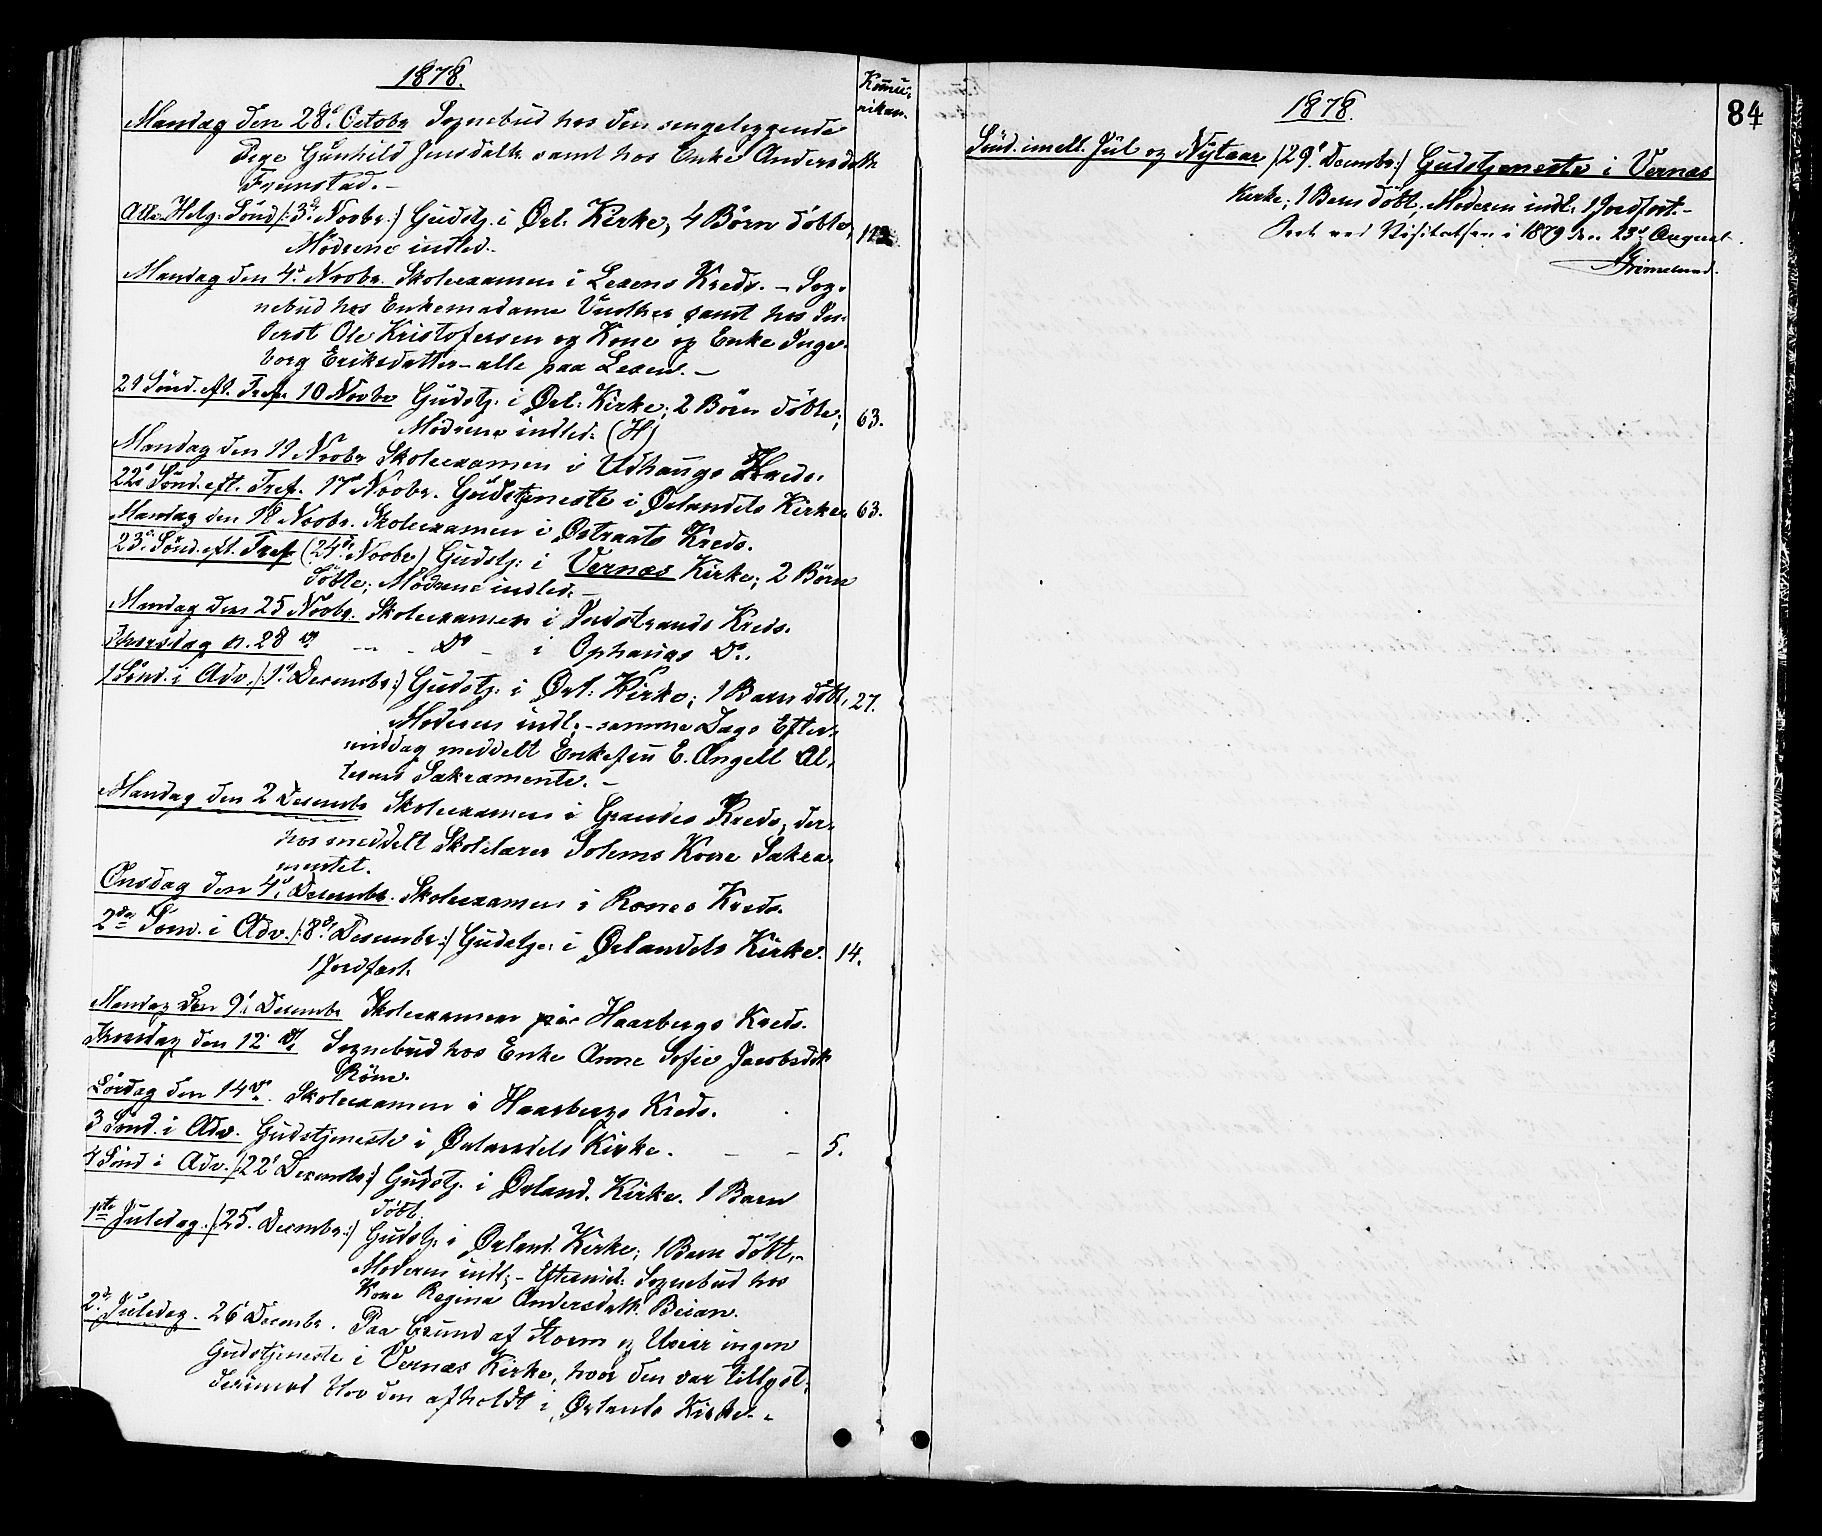 1878.
Kommu-
nikan.
Mandag den 28d Octobr Sognebud hos den sengeliggende
Pige Gunhild Jensdattr samt hos Enke Andersdattr
Alle Helg: Sönd /: 3d Novbr :/ Gudstj. i Örl: Kirke, 4 Börn döbte,
Mödrene indled.
Mandag den 4d Novbr. Skoleexamen i Lexens Kreds. – Sog-
nebud hos Enkemadame samt hos In-
derst Ole Kristofersen og Kone og Enke Inge-
borg Eriksdatter – alle paa Lexen. –
21 Sönd. eft. Tref. 10 Novbr Gudstj. i Örl: Kirke; 2 Börn döbte; 63.
Mödrene indled. (H)
Mandag den 11 Novbr Skoleexamen i Udhaugs Kreds.
22d Sönd. eft. Tref. 17d Novbr. Gudstjeneste i Örlandets Kirke. 63.
Mandag den 18 Novbr. Skoleexamen i Östraats Kreds.
23d Sönd. eft. Tref. (24d Novbr) Gudstj: i Vernæs Kirke; 2 Börn
döbte; Mödrene indled. –
Mandag den 25 Novbr. Skoleexamen i Indstrands Kreds.
Thorsdag d. 28 do – – Do – i Ophaugs Do.
1 Sönd. i Adv. /: 1d Decembr :/ Gudstj: i Örl: Kirke; 1 Barn döbt, 27.
Moderen indl; – samme Dags Efter-
middag meddelt Enkefru E. Angell Al-
terens Sakramente. –
Mandag den 2 Decembr Skoleexamen i Grandes Kreds, der-
hos meddelt Skolelærer Solems Kone Sakra-
mentet.
Onsdag den 4d Decembr. Skoleexamen i Rones Kreds.
2den Sönd. i Adv. /: 8d Decembr :/ Gudstje: i Örlandets Kirke. 14.
1 Jordfæst.
Mandag den 9d Decembr Skoleexamen paa Haarbergs Kreds.
Thorsdag den 12 do Sognebud hos Enke Anne Sofie Jacobsdttr
Röne.
Lördag den 14 do. Skoleexamen i Haarbergs Kreds.
3 Sönd. i Adv. Gudstjeneste i Örlandets Kirke. – – 5.
4 Sönd i Adv. /: 22d Decembr :/ Gudstj. i Örland. Kirke. 1 Barn
döbt.
1ste Juledag. /: 25d Decembr :/ Gudstj. i Örland. Kirke; 1 Barn döbt, –
Moderen indl; – Eftermid: Sognebud hos
Kone Regina Andersdattr Beian.
2d Juledag. 26d Decembr. Paa Grund af Storm og Uveir ingen
Gudstjeneste i Vernæs Kirke, hvor den var tillyst;
derimod blev den afholdt i Örlands Kirke. –
1878.
84
Sönd. imell. Jul og Nytaar /: 29d Decembr :/ Gudstjeneste i Vernæs
Kirke; 1 Barn döbt, Moderen indl. 1 Jordfæst. –
Seet ved Visitatsen i 1879 den 23d August.
Grimelund.